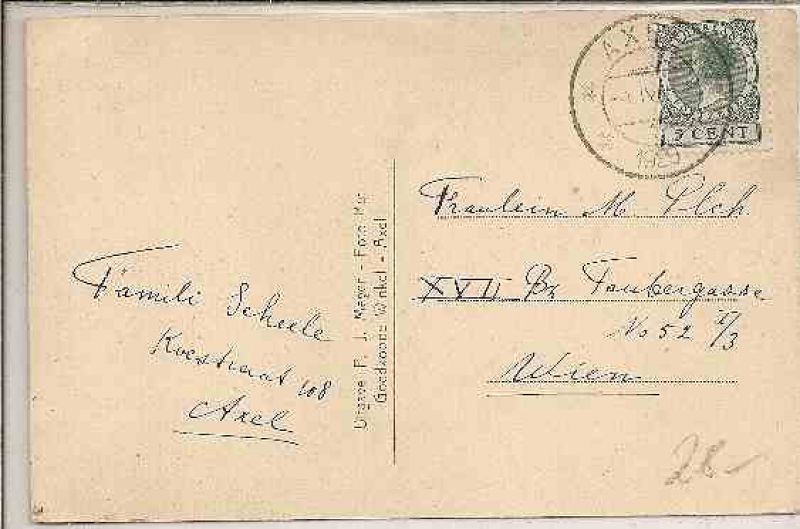 AXEL
IV
1929
5 CENT
Fraulein M. Plch
XVII Bz Taubergasse
No 52 I/3
Wien
Famili Scheele
Koestraat 108
Axel
Uitgave F. J. Meyer - Foto
Goedkoope Winkel - Axel
28-